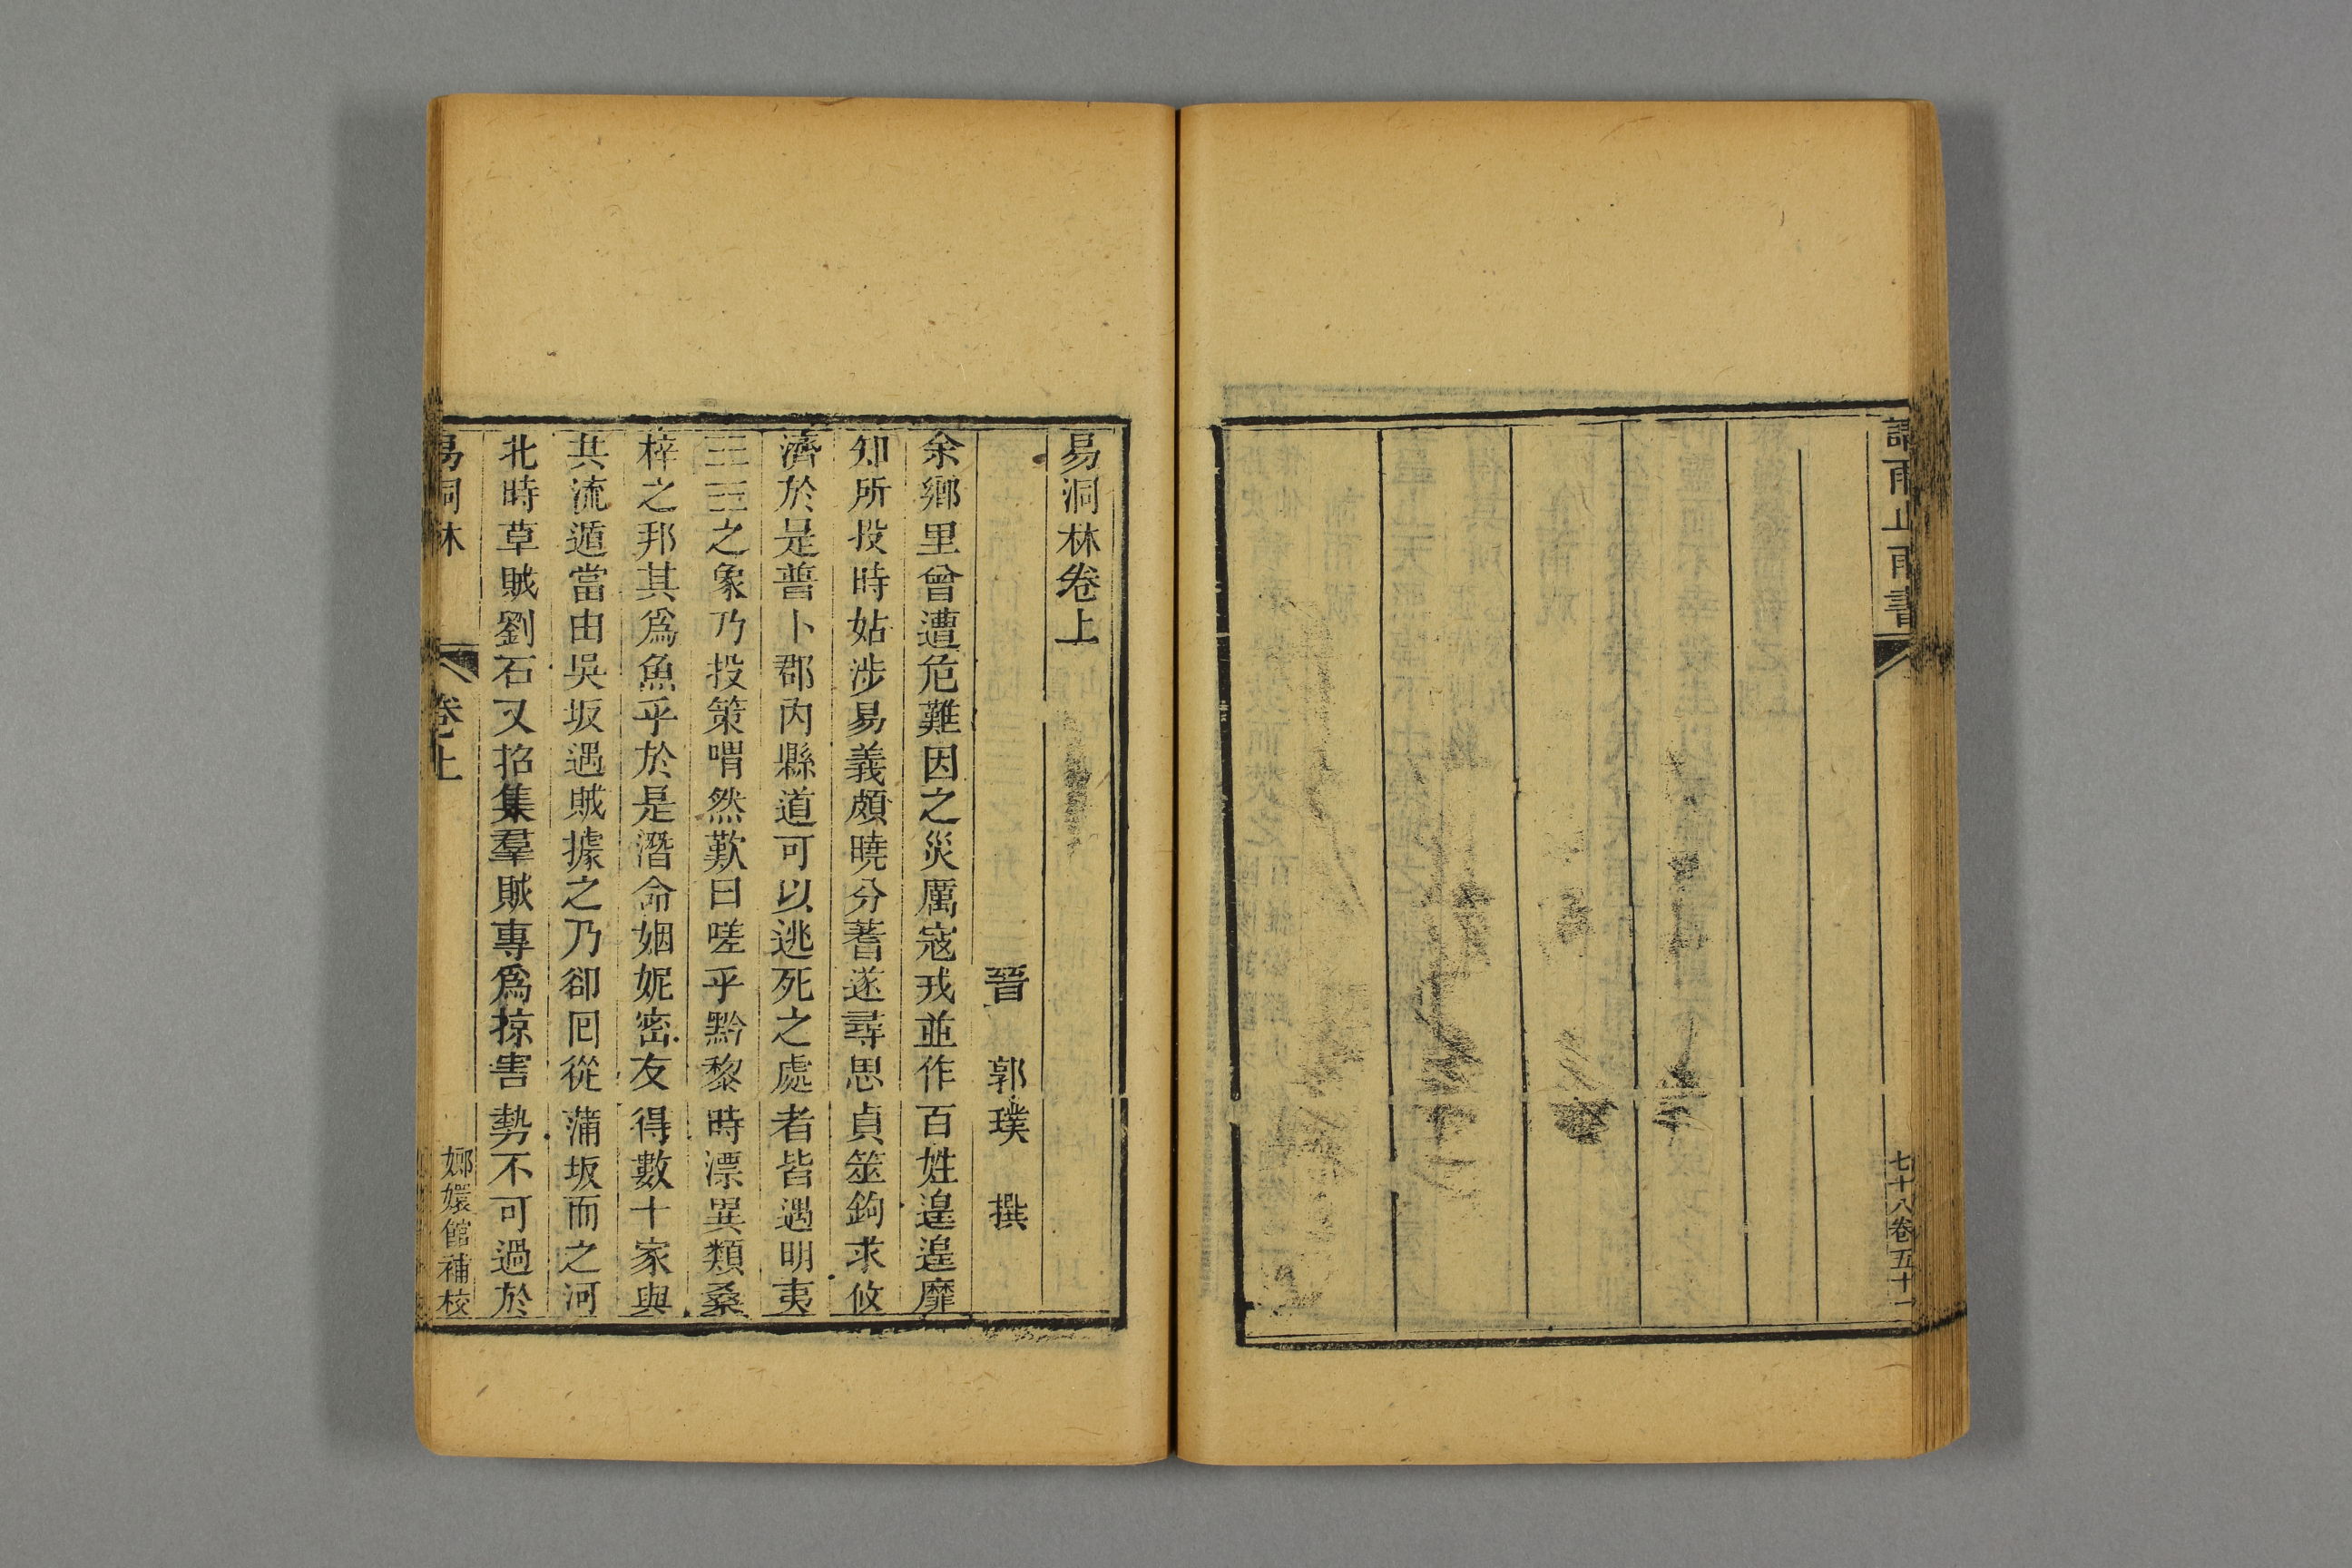 請雨止雨書
七十八卷五十一
易洞林卷上
晉 郭璞 撰
余鄉里曾遭危難因之災厲寇戎並作百姓遑遑靡
知所投時姑涉易義頗曉分蓍遂尋思貞筮鉤求攸
濟於是普卜郡內縣道可以逃死之處者皆遇明夷
之象乃投策喟然歎曰嗟乎黔黎時漂異類桑
梓之邦其爲魚乎於是潛命姻妮密友得數十家與
共流遁當由吳坂遇賊據之乃卻囘從蒲坂而之河
北時草賊劉石又招集羣賊專爲掠害勢不可過於
易洞林
卷上
嫏嬛館補校